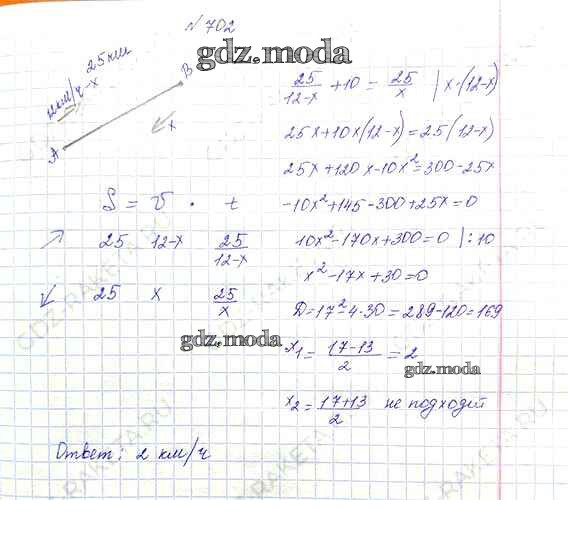 № 702
gdz.moda
25 км
12 км/ч - x
B
A
x
S = v · t
25 12-x 25/(12-x)
25 x 25/x
25/(12-x) + 10 = 25/x | x·(12-x)
25x+10x(12-x)=25(12-x)
25x+120x-10x²=300-25x
-10x²+145-300+25x=0
10x²-170x+300=0 |:10
x²-17x+30=0
D=17²-4·30=289-120=169
gdz.moda
x₁= (17-13)/2 = 2
gdz.moda
x₂= (17+13)/2 не подходит
Ответ: 2 км/ч
GDZ-RAKETA.RU